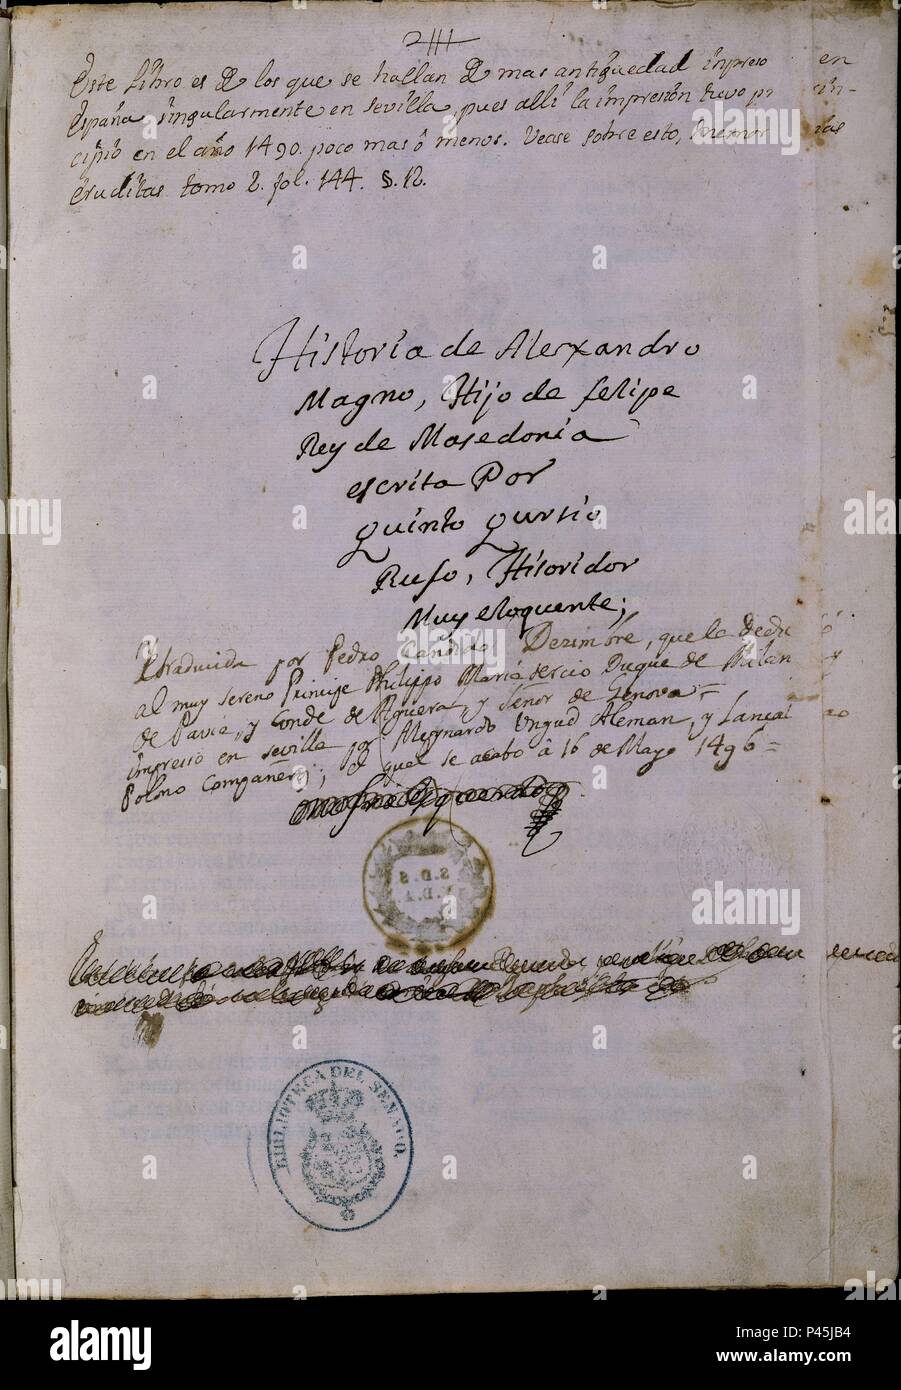 Este Libro es de los que se hallan de mas antiguedad inpreso en
España, singularmente en Sevilla, pues allí la impresion tuvo prin-
cipio en el año 1490. poco mas ó menos. Vease sobre esto, memorias
eruditas tomo 2. fol. 144. §. 12.
Historia de Alexandro
Magno, Hijo de felipe
Rey de Masedonia
escrita Por
Quinto Qursio
Rufo, Hisoridor
Muy eloquente;
traducida por Pedro Candido Dezimbre, que la dedicó
al muy sereno Principe Philippo Maria tercio Duque de Milan y
de Pavia, y Conde de Aguera, y Señor de Genova =
impresso en Sevilla por Meynardo Ungud Aleman, y Lançalao
Polono Compañero; el qual se acabo â 16 de Mayo 1496 =
S.D.S
BIBLIOTECA DEL SENADO.
alamy
P45JB4
www.alamy.com